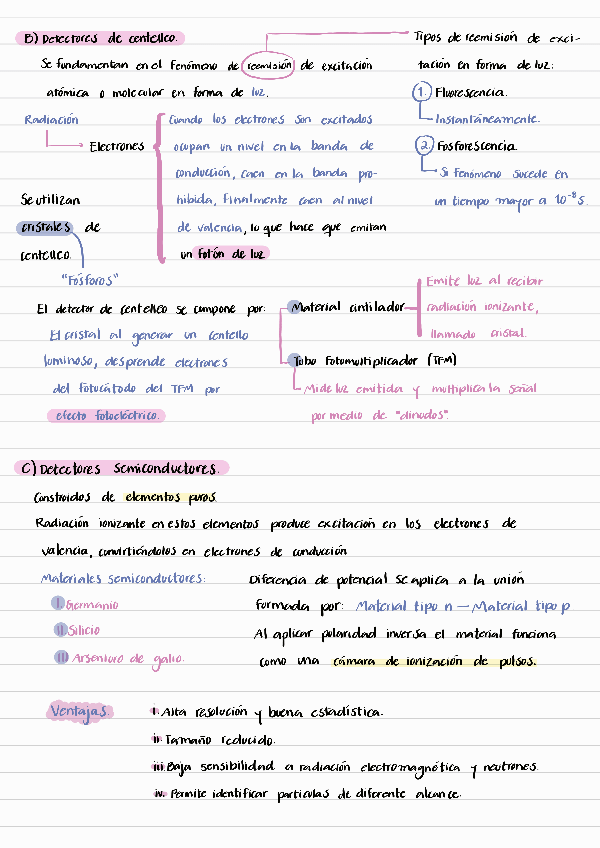 B) Detectores de centelleo.
Se fundamentan en el fenómeno de reemisión de excitación
atómica o molecular en forma de luz.
Tipos de reemisión de exci-
tación en forma de luz:
1. Fluorescencia.
Instantáneamente.
2. Fosforescencia.
Si fenómeno sucede en
un tiempo mayor a 10⁻⁸ s.
Radiación
Electrones
Cuando los electrones son excitados
ocupan un nivel en la banda de
conducción, caen en la banda pro-
hibida, finalmente caen al nivel
de valencia, lo que hace que emitan
un fotón de luz
Se utilizan
cristales de
centelleo.
"Fósforos"
El detector de centelleo se compone por:
Material cintilador
Emite luz al recibir
radiación ionizante,
llamado cristal.
Tubo fotomultiplicador (TFM)
Mide luz emitida y multiplica la señal
por medio de "dinodos".
El cristal al generar un centello
luminoso, desprende electrones
del fotocátodo del TFM por
efecto fotoeléctrico.
C) Detectores semiconductores.
Construidos de elementos puros
Radiación ionizante en estos elementos produce excitación en los electrones de
valencia, convirtiéndolos en electrones de conducción
Materiales semiconductores:
I Germanio
II Silicio
III Arseniuro de galio.
Diferencia de potencial se aplica a la unión
formada por: Material tipo n — Material tipo p
Al aplicar polaridad inversa el material funciona
como una cámara de ionización de pulsos.
Ventajas.
i. Alta resolución y buena estadística.
ii. Tamaño reducido.
iii. Baja sensibilidad a radiación electromagnética y neutrones.
iv. Permite identificar partículas de diferente alcance.